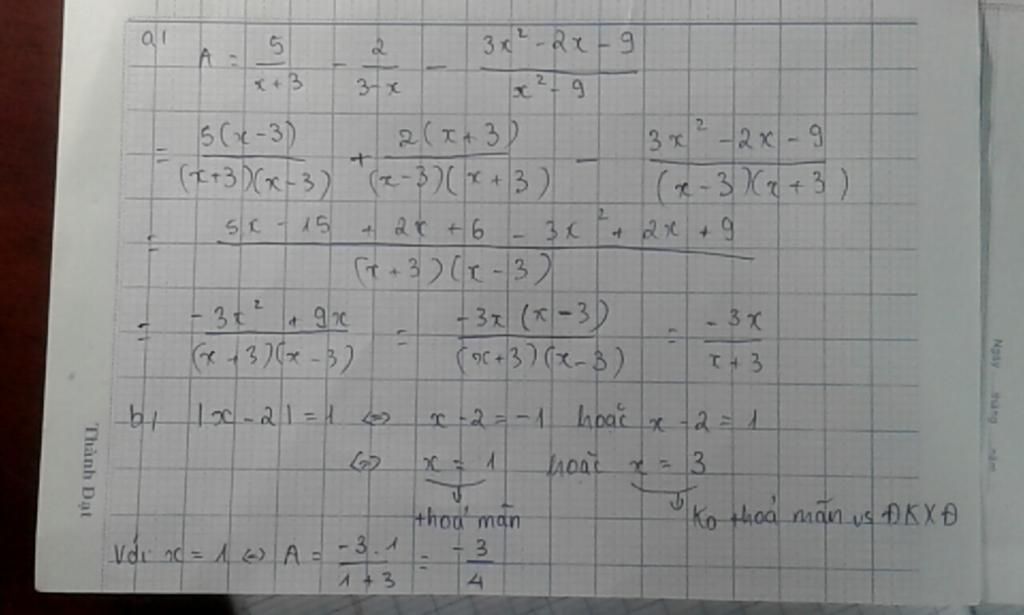 a, A = 5/(x+3) - 2/(3-x) - (3x² - 2x - 9)/(x² - 9)
= 5(x-3)/((x+3)(x-3)) + 2(x+3)/((x-3)(x+3)) - (3x² - 2x - 9)/((x-3)(x+3))
= (5x - 15 + 2x + 6 - 3x² + 2x + 9)/((x+3)(x-3))
= (-3x² + 9x)/((x+3)(x-3)) = -3x(x-3)/((x+3)(x-3)) = -3x/(x+3)
b, |x-2| = 1 ⇔ x-2 = -1 hoặc x-2 = 1
⇔ x = 1 hoặc x = 3
thoả mãn
Ko thoả mãn vs ĐKXĐ
Với x = 1 ⇔ A = (-3.1)/(1+3) = -3/4
Thành Đạt
Ngày tháng năm